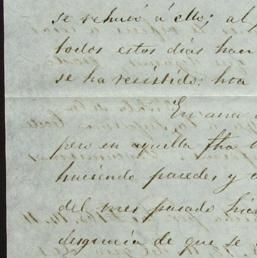 se rehusó á ello; al p
todos estos dias han
se ha resistido; hoa
En una
pero en aquella fha
haciendo paredes y
del mes pasado hic
desgracia de que se